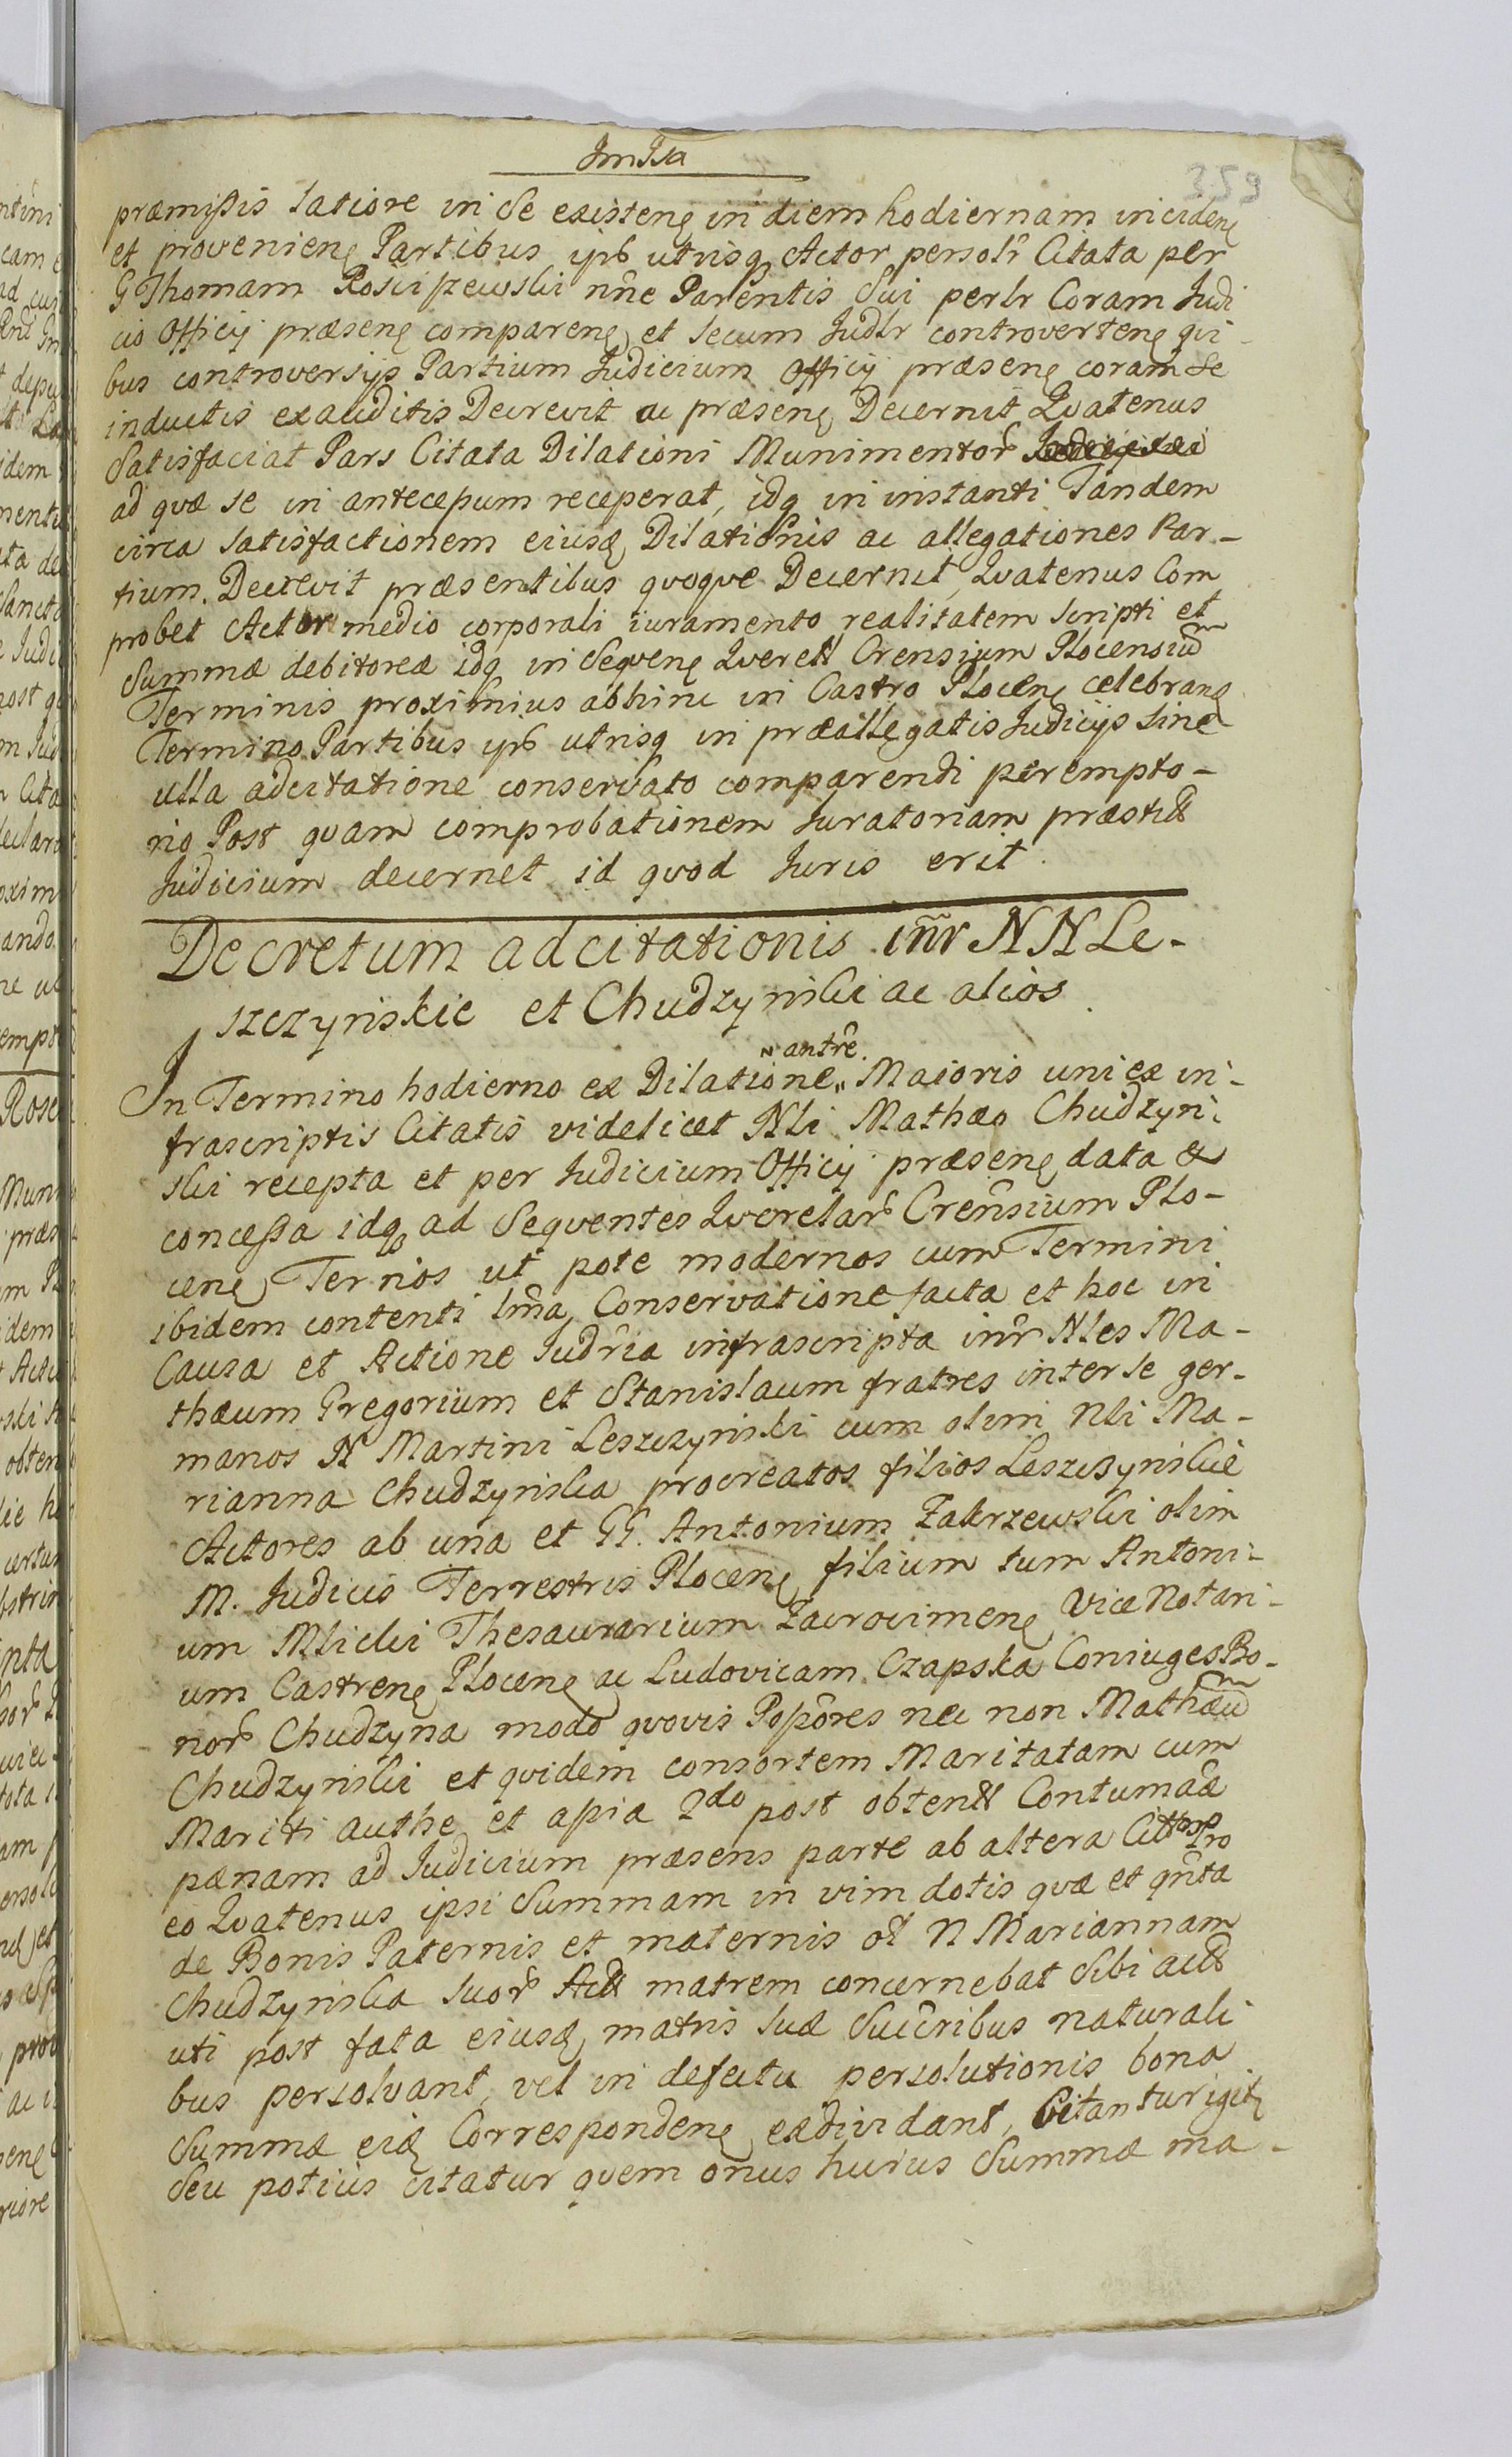 359
præmissis latiore in se existenę in diem hodiernam incidenę
et provenienę Partibus ipß utrisq Actor persolr Citata per
G Thomam Rosciszewski nñe Parentis Sui perlr Coram Judi
cio Officij præsenę comparenę et secum Judlr controvertenę qui-
bus controversijs Partium Judicium Officij præsenę coram se
inductis exauditis Decrevit ac præsenę Decernit Quatenus
Satisfaciat Pars Citata Dilationi Munimentor̃
ad quæ se in antecessum receperat, idq in instanti Tandem
circa satisfactionem eiusdę Dilationis ac allegationes Par-
tium. Decrevit præsentibus quoque Decernit, Quatenus Com
probet Actor medio corporali iuramento realitatem scripti et
Summæ debitoreæ idq in Sequenę Querell Crensium Plocensiũm
Terminis proximius abhinc in Castro Plocenę celebranę
Termino Partibus ipß utrisq in præallegatis Judicijs sine
ulla adcitatione conservato comparendi perempto-
rio Post quam comprobationem Juratoriam præstitt
Judicium decernet id quod Juris erit.
Decretum adcitationis inr̃ NN Le-
szczynskie et Chudzynski ac alios
In Termino hodierno ex Dilatione " antr̃e. Maioris uni ex in-
frascriptis Citatis videlicet Nli Mathæo Chudzyn-
ski recepta et per Judicium Officij præsenę data &
concessa idq ad Sequentes Querelar̃ Creñsium Plo-
cenę Ter nos ut pote modernos cum Termini
ibidem contenti lm̃a Conservatione facta et hoc in
Causa et Actione Judr̃ia infrascripta inr̃ Nles Ma-
thæum Gregorium et Stanislaum fratres inter se ger-
manos N Martini Leszczynski cum olim Nli Ma-
rianna Chudzynska procreatos filios Leszczynskie
Actores ab una et GG. Antonium Zakrzewski olim
M. Judicis Terrestris Plocenę filium tum Antoni-
um Mlicki Thesaurarium Zacrocimenę Vice Notari-
um Castrenę Plocenę ac Ludovicam Czapska Coniuges Bo-
nor̃ Chudzyna modo quovis Possores nec non Mathæũm
Chudzynski et quidem consortem Maritatam cum
Mariti authe et assia 2do post obtentt Contumãæ
pænam ad Judicium præsens parte ab altera Cittos Pro
eo Quatenus ipsi Summam in vim dotis quæ et qñta
de Bonis Paternis et maternis oł N Mariannam
Chudzynska suor̃ Actt matrem concernebat Sibi actt
uti post fata eiusdę matris suæ Succribus naturali
bus persolvant, vel in defectu persolutionis bona
Summæ eidę Correspondenę exdividant, Citantur igitę
Seu potius citatur quem onus huius Summæ ma-